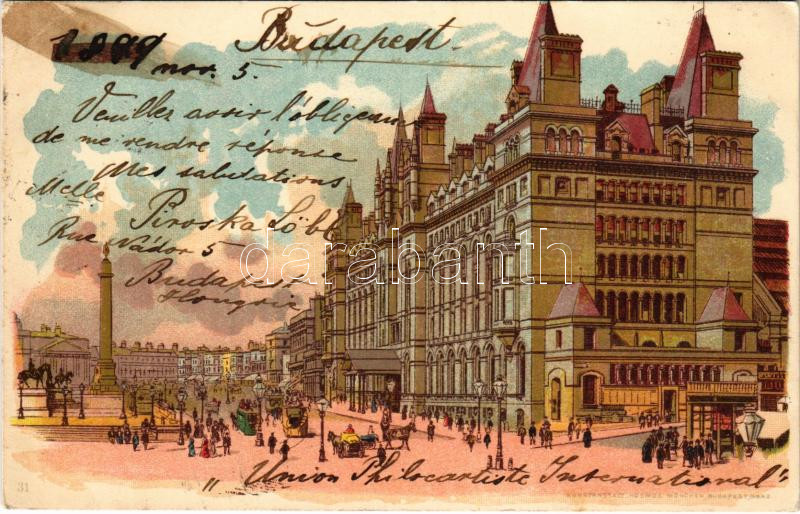 Budapest.
1899
nov. 5.
Veuillez avoir l'obligeance
de me rendre réponse
Mes salutations
Melle Piroska Löbl
Rue Nádor 5
Budapest
Hongrie
darabanth
31
"Union Philocartiste International"
KUNSTANSTALT KOSMOS MÜNCHEN BUDAPEST GRAZ